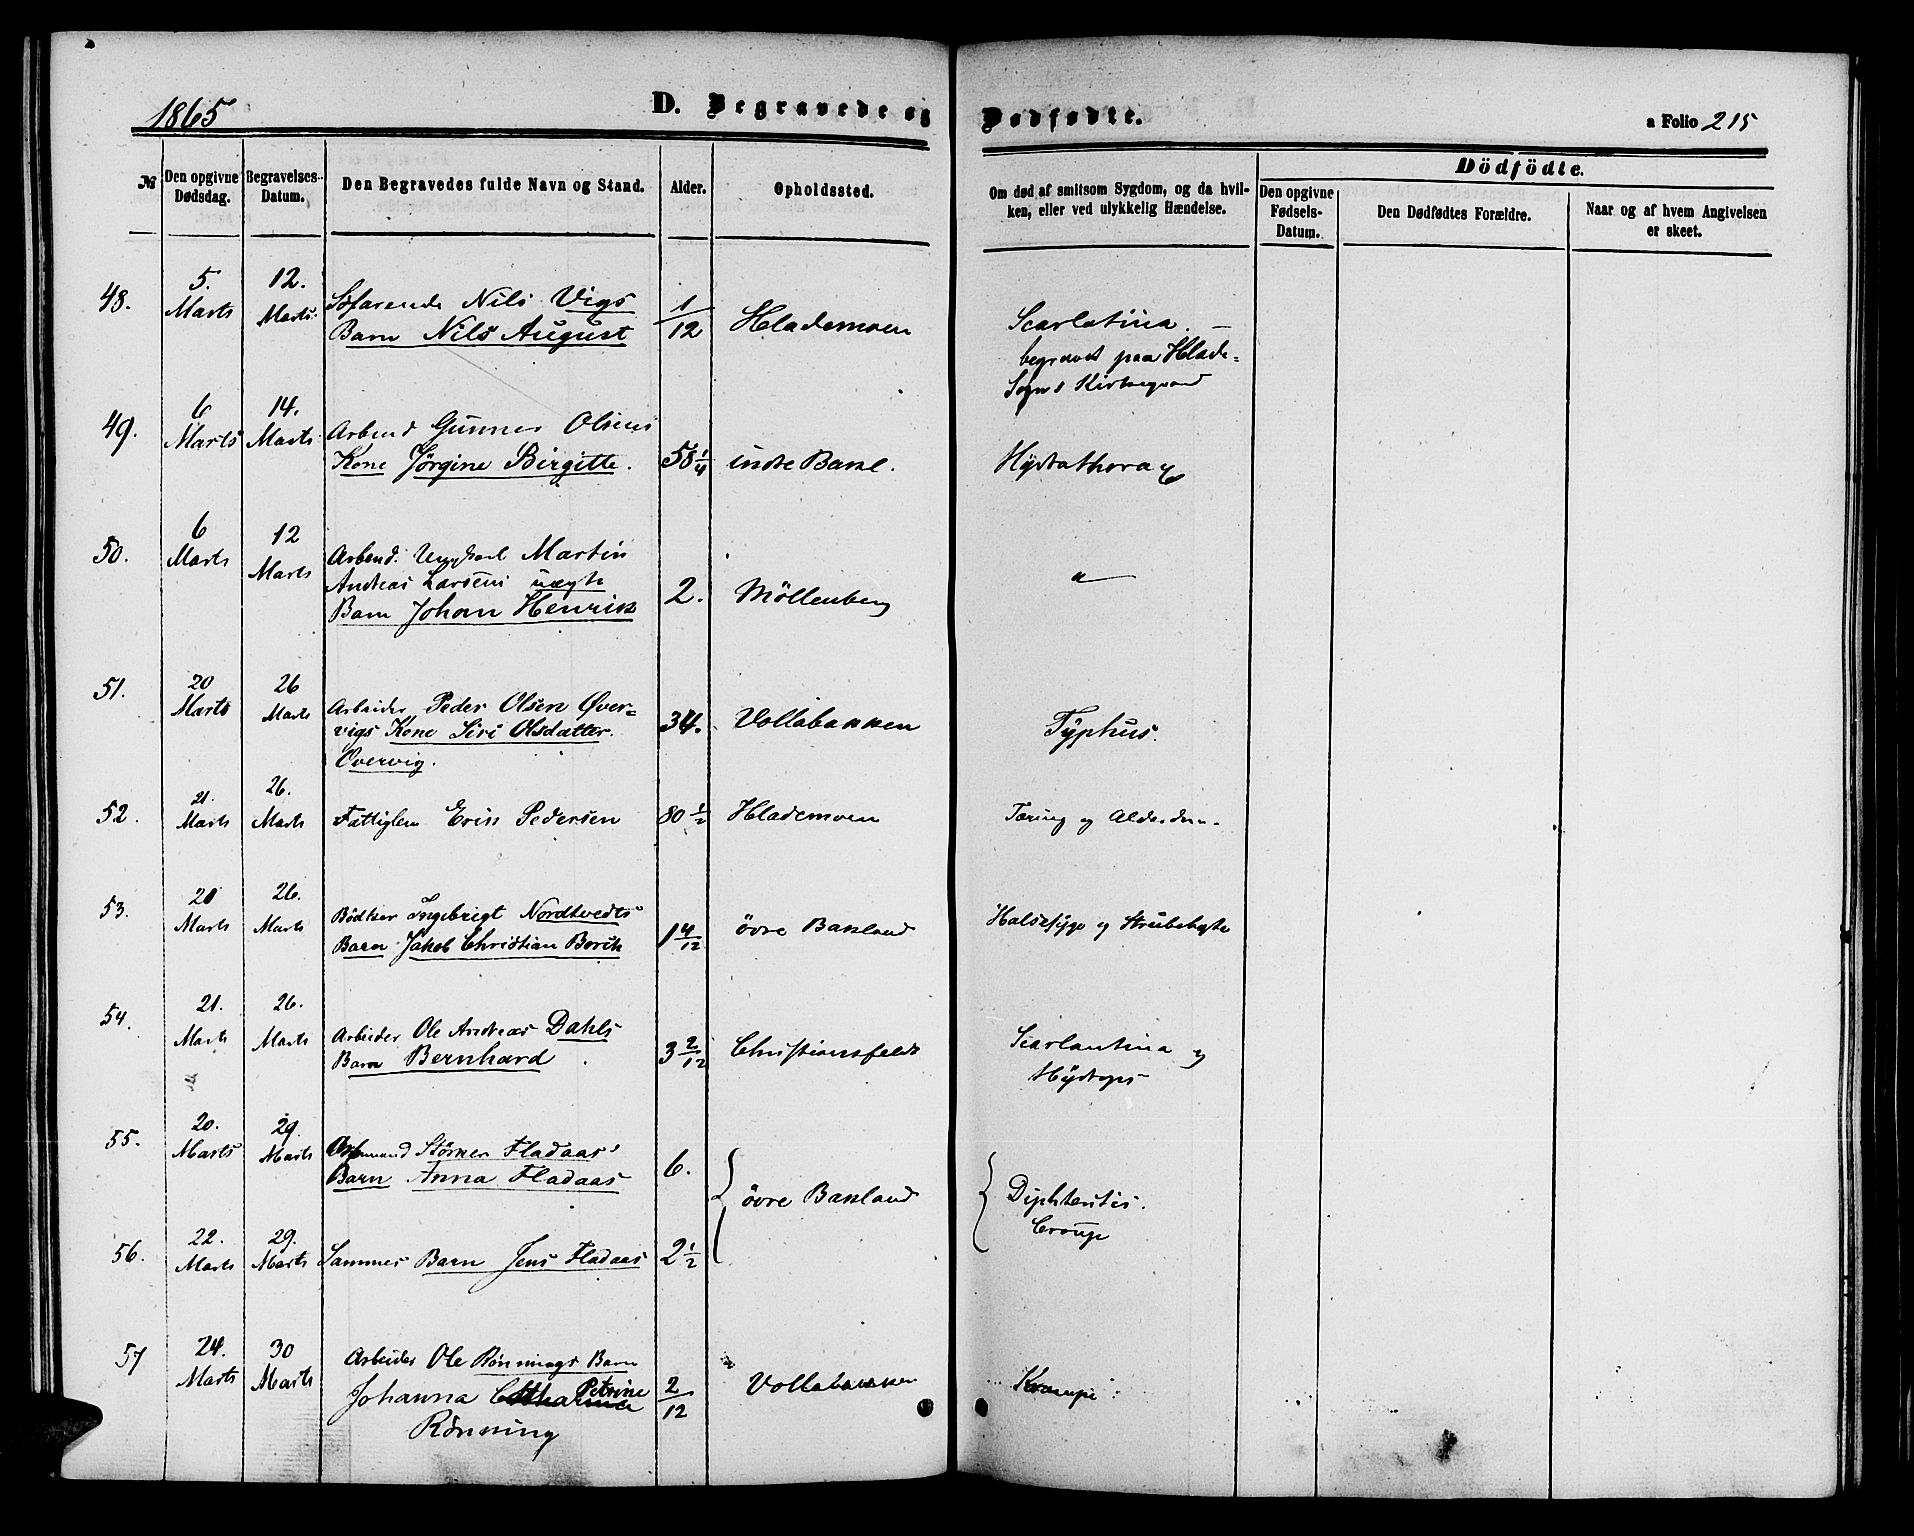 1865
D. Begravede og Dødfødte.
a Folio 215
№
Den opgivne Dødsdag.
Begravelses-Datum.
Den Begravedes fulde Navn og Stand.
Alder.
Opholdssted.
Om død af smitsom Sygdom, og da hvil-
ken, eller ved ulykkelig Hændelse.
Dödfödte.
Den opgivne Fødsels-Datum.
Den Dødfødtes Forældre.
Naar og af hvem Angivelsen er skeet.
48. 5. Marts 12. Marts.
Söfarende Nils Vigs
Barn Nils August
1/12 Hlademoen
Scarlatina. —
begravet paa Hlade-
Sogns Kirkegaard
49. 6 Marts 14. Marts.
Arbmd Gunner Olsens
Kone Jørgine Birgitte.
58 1/4 indre Bakl.
50. 6 Marts 12 Marts
Arbmd. Ungkarl Martin
Andreas Larsens uægte
Barn Johan Henrik
2. Möllenberg
"
51. 20 Marts 26 Marts
Arbeider Peder Olsen Øver=
vigs Kone Siri Olsdatter.
Overvig.
34. Vollabakken
Typhus.
52. 21. Marts 26. Marts
Fattiglem Erik Pedersen
80 1/2 Hlademoen
Tæring og
53. 21 Marts 26. Marts
Bödker Ingebrigt Nordtvedts
Barn Jakob Christian Borik
1 4/12 övre Bakland
Halsesyge og Strubehoste
54. 21. Marts 26. Marts
Arbeider Ole Andreas Dahls
Barn Bernhard
3 2/12 Christiansfeldt
Scarlantina og
55. 20. Marts 29. Marts
Størker Fladaas'
Barn Anna Fladaas
6.
övre Bakland
Diphteritis.
Croup
56. 22. Marts 29. Marts
Sammes Barn Jens Fladaas
2 1/2
57 24. Marts 30 Marts
Arbeider Ole Rønnings Barn
Johanna Catharina Petrine
Rönning
2/12 Vollabakken
Krampe